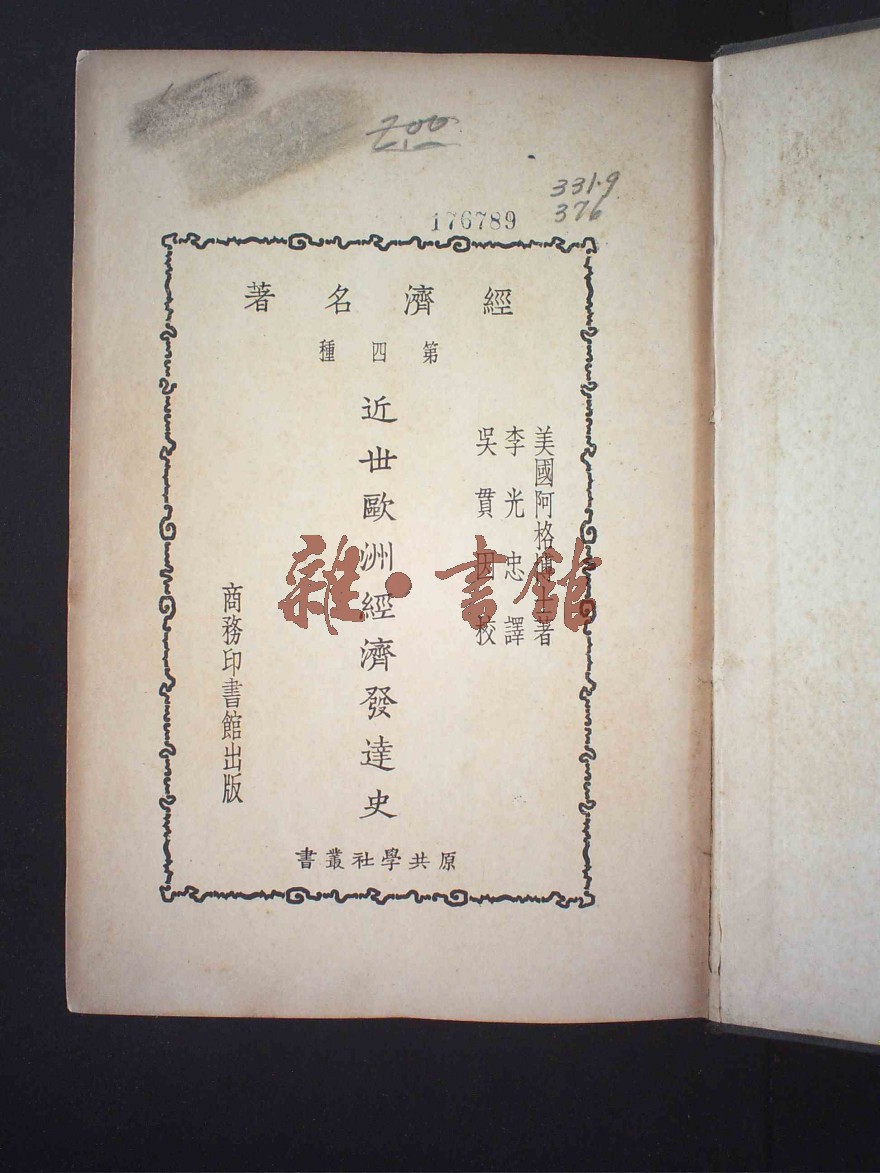 200
331.9
376
176789
經濟名著
第四種
美國阿格博士著
李光忠譯
吳貫因校
近世歐洲經濟發達史
商務印書館出版
原共學社叢書
雜·書館